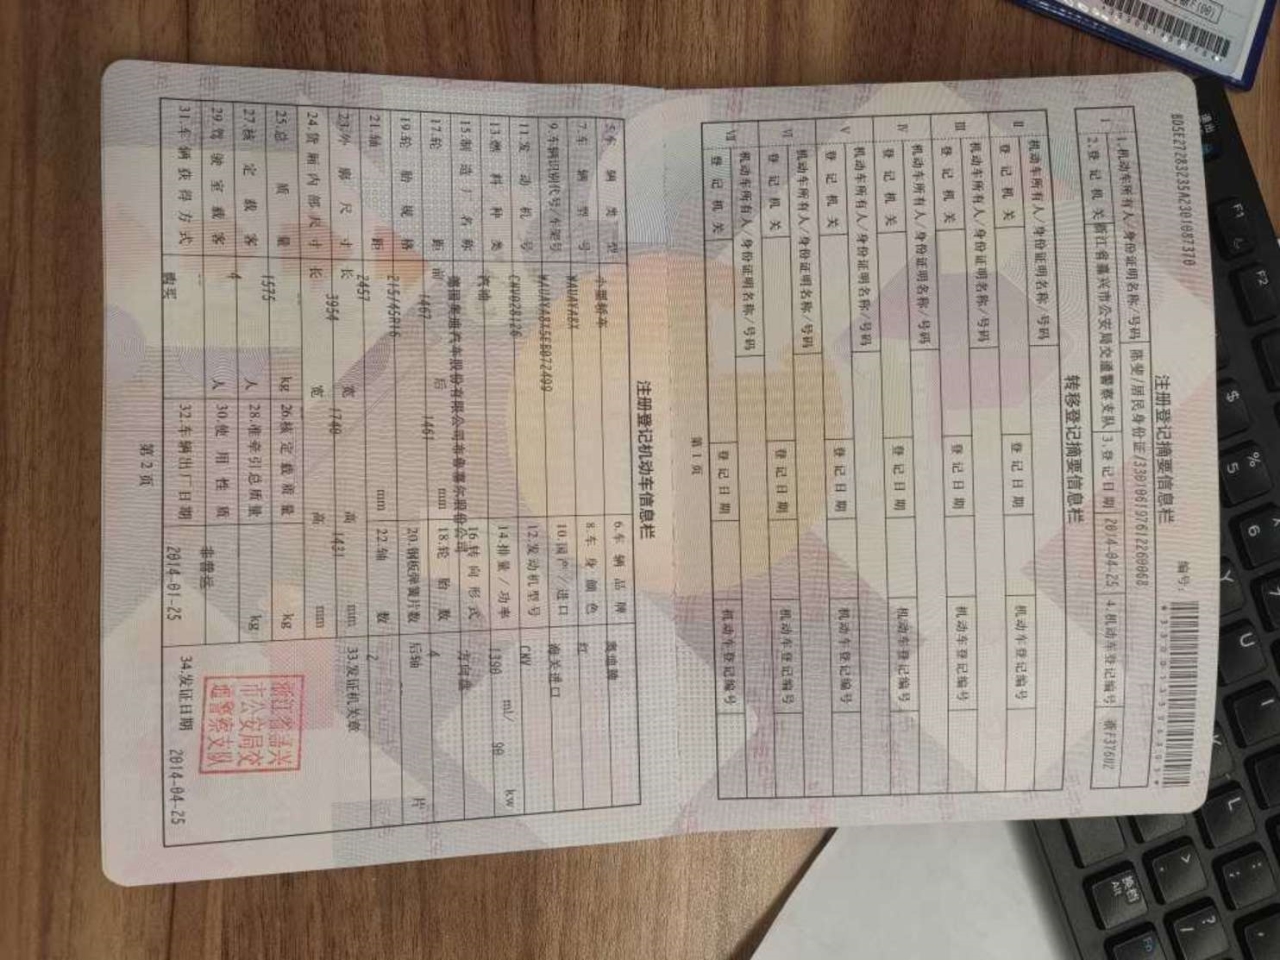 8D5E27283235A2301087370
编号:
注册登记摘要信息栏
I
1.机动车所有人/身份证明名称/号码 陈斐/居民身份证/330106197612260068
2.登记机关 浙江省嘉兴市公安局交通警察支队 3.登记日期 2014-04-25 4.机动车登记编号 浙F376U2
转移登记摘要信息栏
II 机动车所有人/身份证明名称/号码
登记机关 登记日期 机动车登记编号
III 机动车所有人/身份证明名称/号码
登记机关 登记日期 机动车登记编号
IV 机动车所有人/身份证明名称/号码
登记机关 登记日期 机动车登记编号
V 机动车所有人/身份证明名称/号码
登记机关 登记日期 机动车登记编号
VI 机动车所有人/身份证明名称/号码
登记机关 登记日期 机动车登记编号
VII 机动车所有人/身份证明名称/号码
登记机关 登记日期 机动车登记编号
第1页
注册登记机动车信息栏
5.车辆类型 小型轿车 6.车辆品牌 奥迪牌
7.车辆型号 WAUAYA8X 8.车身颜色 红
9.车辆识别代号/车架号 WAUAYA8X5EB072499 10.国产/进口 海关进口
11.发动机号 CNV028126 12.发动机型号 CNV
13.燃料种类 汽油 14.排量/功率 1390 ml/ 90 kw
15.制造厂名称 德国奥迪汽车股份有限公司布鲁塞尔股份公司 16.转向形式 方向盘
17.轮距 前 1467 后 1461 mm 18.轮胎数 4
19.轮胎规格 215/45R16 20.钢板弹簧片数 后轴 片
21.轴距 2457 mm 22.轴数 2
23.外廓尺寸 长 3954 宽 1740 高 1431 mm 33.发证机关章
24.货厢内部尺寸 长 宽 高 mm
25.总质量 1575 kg 26.核定载质量 kg
27.核定载客 4 人 28.准牵引总质量 kg
29.驾驶室载客 -- 人 30.使用性质 非营运
31.车辆获得方式 购买 32.车辆出厂日期 2014-01-25 34.发证日期 2014-04-25
浙江省嘉兴
市公安局交
通警察支队
第2页
F1
F2
$
%
5
6
Y
U
I
L
换档
Alt